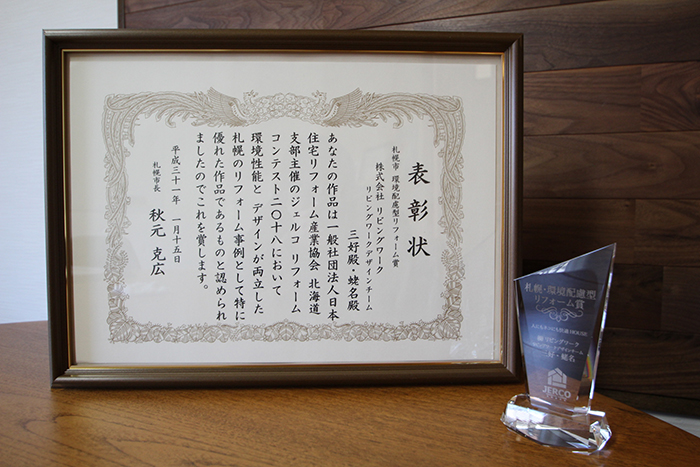 表彰状
札幌市 環境配慮型リフォーム賞
株式会社 リビングワーク
リビングワークデザインチーム
三好殿・蛯名殿
あなたの作品は一般社団法人日本
住宅リフォーム産業協会 北海道
支部主催のジェルコ リフォーム
コンテスト二〇十八において
環境性能と デザインが両立した
札幌のリフォーム事例として特に
優れた作品であるものと認められ
ましたのでこれを賞します。
平成三十一年 一月十五日
札幌市長 秋元 克広
札幌・環境配慮型
リフォーム賞
三好・蛯名
JERCO